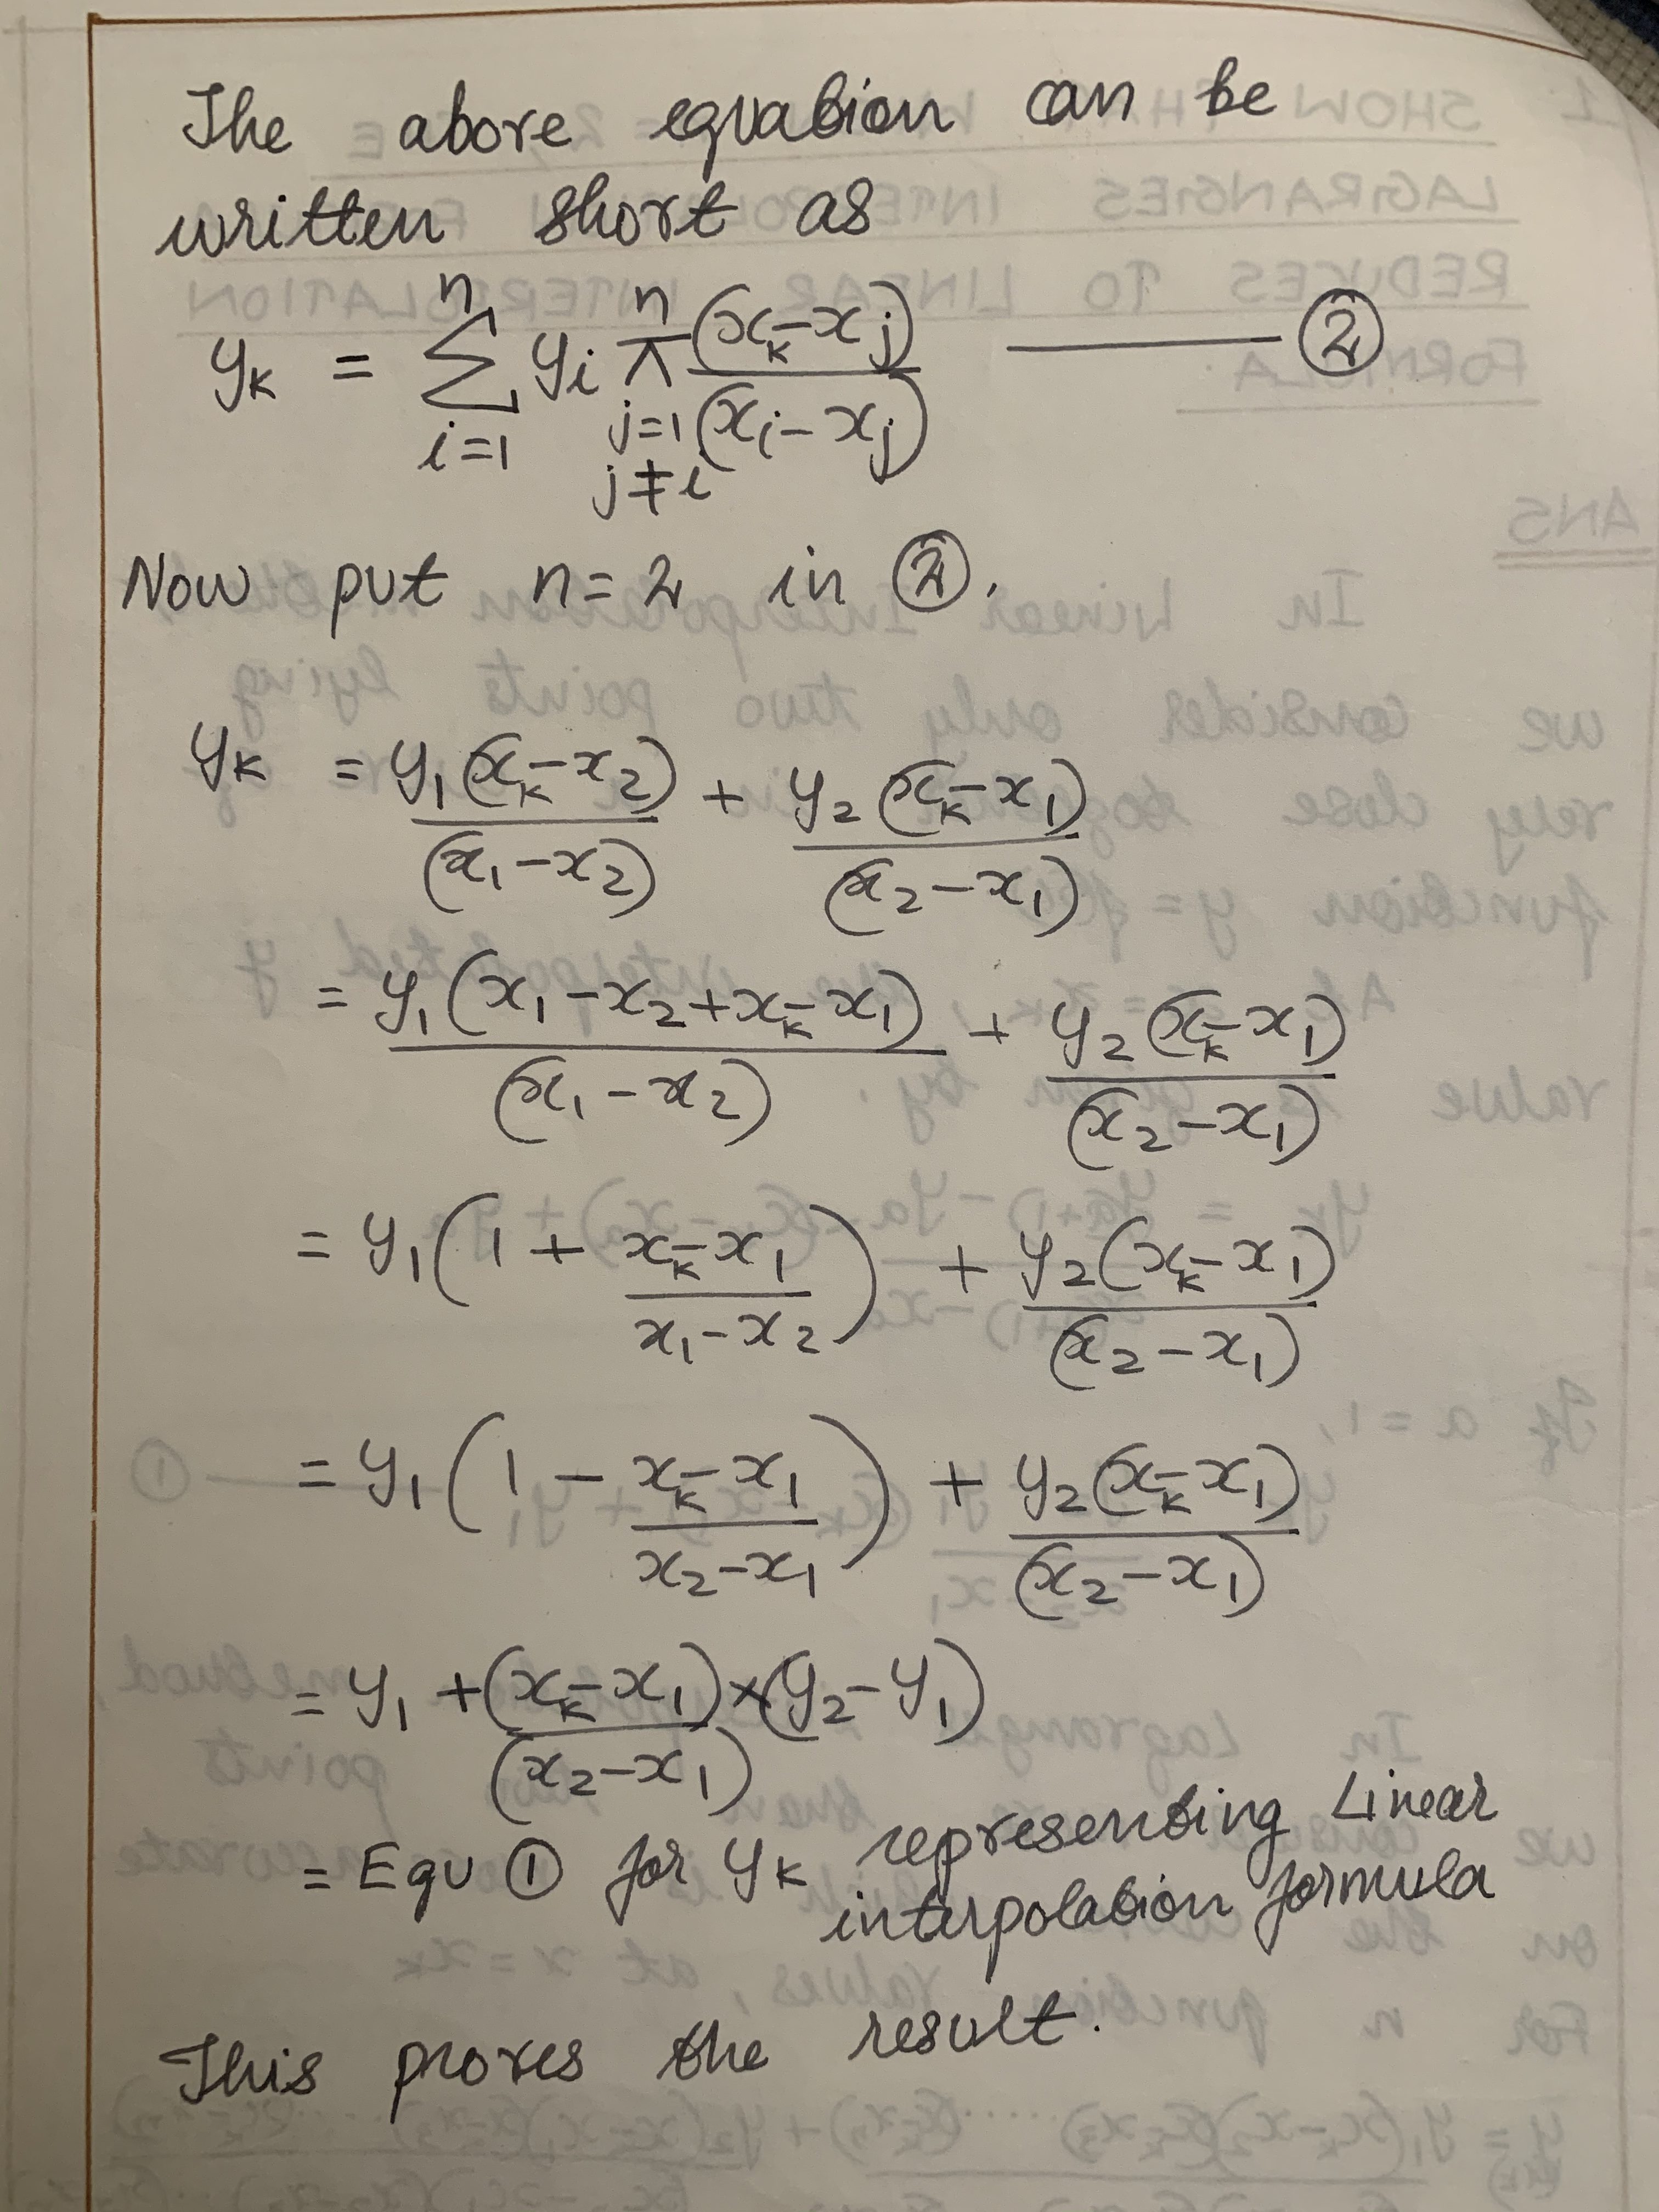 The above equation can be
written short as
y_k = \sum_{i=1}^{n} y_i \prod_{j=1, j≠i}^{n} \frac{(x_k - x_j)}{(x_i - x_j)} ——— ②
Now put n=2 in ②.
y_k = \frac{y_1(x_k - x_2)}{(x_1 - x_2)} + \frac{y_2(x_k - x_1)}{(x_2 - x_1)}
= \frac{y_1(x_1 - x_2 + x_k - x_1)}{(x_1 - x_2)} + \frac{y_2(x_k - x_1)}{(x_2 - x_1)}
= y_1(1 + \frac{x_k - x_1}{x_1 - x_2}) + \frac{y_2(x_k - x_1)}{(x_2 - x_1)}
= y_1(1 - \frac{x_k - x_1}{x_2 - x_1}) + \frac{y_2(x_k - x_1)}{(x_2 - x_1)}
= y_1 + \frac{(x_k - x_1)}{(x_2 - x_1)} × (y_2 - y_1)
= Equ ① for y_k representing Linear
interpolation formula
This proves the result.